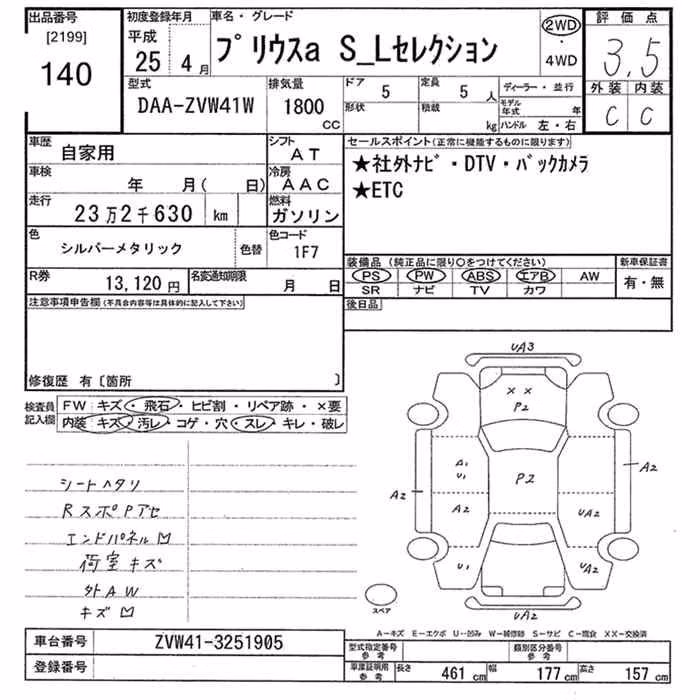 出品番号
[2199]
140
初度登録年月
平成
25 4月
車名・グレード
プリウスa S_Lセレクション
2WD
・
4WD
評価点
3.5
外装 内装
C C
型式
DAA-ZVW41W
排気量
1800
CC
ドア
5
形状
定員
5 人
積載
kg
ディーラー・並行
モデル年式 年
ハンドル 左・右
車歴
自家用
シフト
AT
車検
年 月( 日)
冷房
AAC
走行
23万2千630 km
燃料
ガソリン
色
シルバーメタリック
色替
色コード
1F7
R券
13,120円
名変通知期限
月 日
セールスポイント(正常に機能するものに限ります)
★社外ナビ・DTV・バックカメラ
★ETC
装備品 (純正品に限り○をつけてください)
PS PW ABS エアB AW
SR ナビ TV カワ
新車保証書
有・無
後日品
注意事項申告欄(不具合内容等は具体的に記入して下さい)
修復歴 有〔箇所 〕
検査員記入欄
FW キズ・飛石・ヒビ割・リペア跡・×要
内装 キズ・汚レ・コゲ・穴・スレ・キレ・破レ
シートヘタリ
RスポPアセ
エンドパネル凹
荷室キズ
外AW
キズ凹
UA3
××
P2
A1
U1
P2
A2
A2
A2
UA2
U1
UA2
UA2
スペア
A-キズ E-エクボ U-凹み W-補修跡 S-サビ C-腐食 XX-交換済
車台番号
ZVW41-3251905
登録番号
型式指定番号 参考
類別区分番号 参考
車庫証明用 参考
長さ 461 cm 幅 177 cm 高さ 157 cm